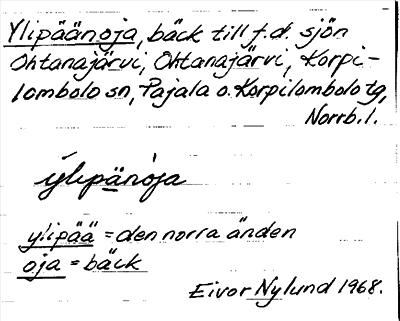 Ylipäänoja, bäck till f.d. sjön
Ohtanajärvi, Ohtanajärvi, Korpi-
lombolo sn, Pajala o. Korpilombolo tg,
Norrb.l.
ylipänòja
ylipää = den norra änden
oja = bäck
Eivor Nylund 1968.